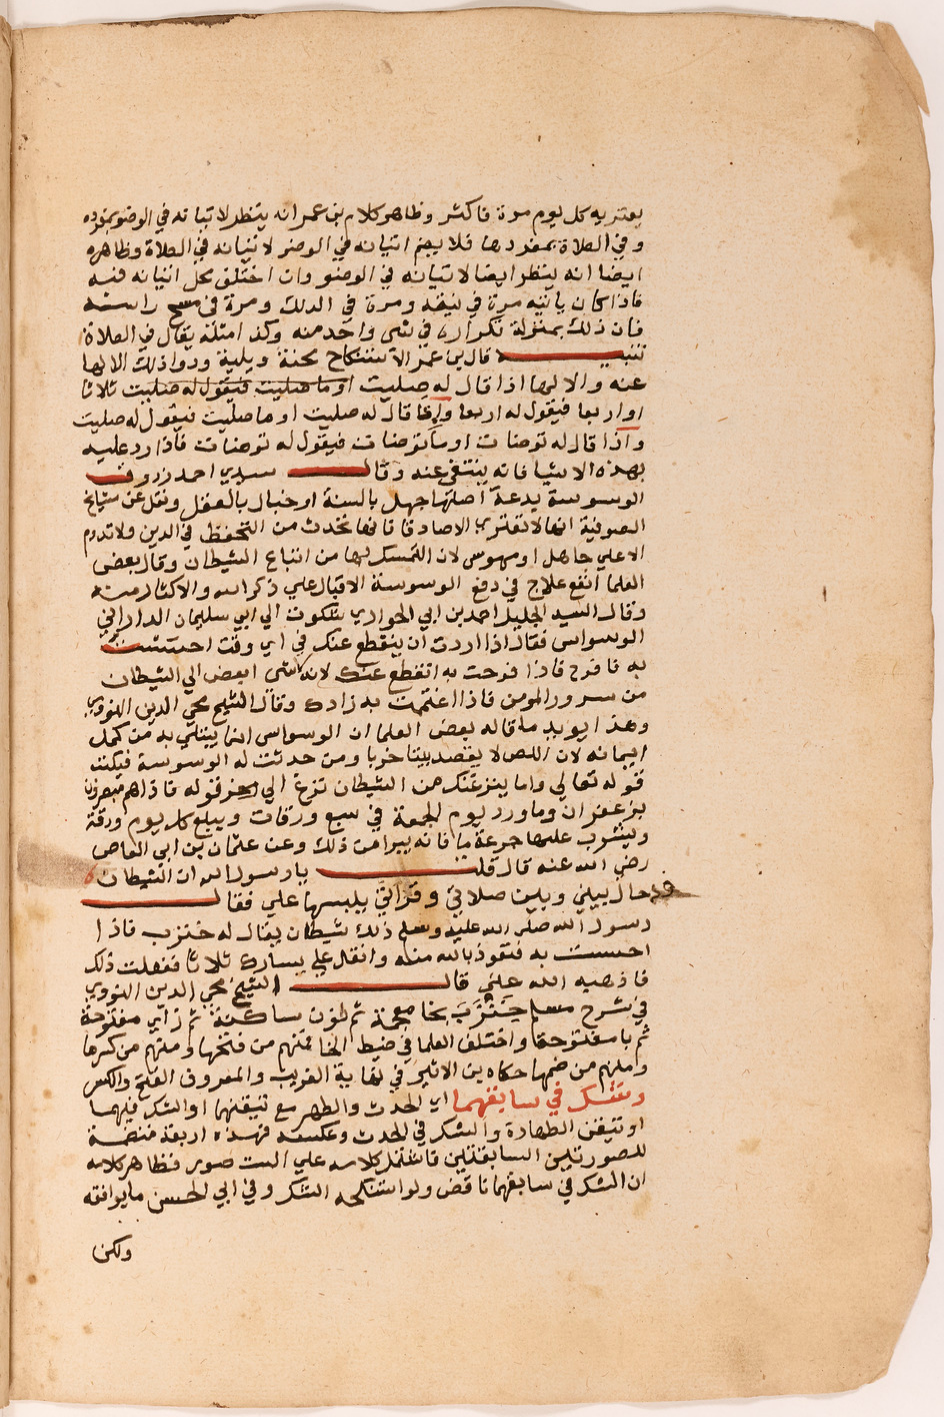 يعتريه كل يوم مرة فاكثر وظاهر كلام بن عمر انه ينظر لاتيانه في الوضو بمفرده
وفي الصلاة بمفردها فلا يضم اتيانه في الوضو لاتيانه في الصلاة وظاهره
ايضا انه ينظر ايضا لاتيانه في الوضو وان اختلف محل اتيانه فيه
فاذا كان ياتيه مرة في نيته ومرة في الدلك ومرة في مسح راسه
فان ذلك بمنزلة تكراره في شي واحد منه وكذا مثله يقال في الصلاة
تنبيه قال بن عمر الاستنكاح محنة وبلية ودوا ذلك الالها
عنه والالها اذا قال له صليت او ما صليت فيقول له صليت ثلاثا
او اربعا فيقول له اربعا واذا قال له صليت او ما صليت فيقول له صليت
واذا قال له توضات او ما توضات فيقول له توضات فاذا رد عليه
بهذه الاشيا فانه ينتفي عنه وقال سيدي احمد زروق
الوسوسة بدعة اصلها جهل بالسنة او خبال بالعقل ونقل عن مشايخ
الصوفية انها لا تعتري الا صادقا فانها تحدث من التحفظ في الدين ولا تدوم
الا علي جاهل او مهوس لان التمسك بها من اتباع الشيطان وقال بعض
العلما انفع علاج في دفع الوسوسة الاقبال علي ذكر الله والاكثار منه
وقال السيد الجليل احمد بن ابي الحواري شكوت الي ابي سليمان الداراني
الوسواس فقال اذا اردت ان ينقطع عنك في اي وقت احسست
به فافرح فاذا فرحت به انقطع عنك لانه لا شي ابغض الي الشيطان
من سرور المومن فاذا اغتممت به زادك وقال الشيخ محي الدين النووي
وهذا يويد ما قاله بعض العلما ان الوسواس انما يبتلي به من كمل
ايمانه لان اللص لا يقصد بيتا خربا ومن حدثت له الوسوسة فيكتب
قوله تعالي واما ينزغنك من الشيطان نزغ الي اخر قوله فاذا هم مبصرون
بزعفران وماورد يوم الجمعة في سبع ورقات ويبلع كل يوم ورقة
ويشرب عليها جرعة ما فانه يبرا من ذلك وعن عثمان بن ابي العاص
رضي الله عنه قال قلت يا رسول الله ان الشيطان
قد حال بيني وبين صلاتي وقراتي يلبسها علي فقال
رسول الله صلي الله عليه وسلم ذلك شيطان يقال له خنزب فاذا
احسست به فتعوذ بالله منه واتفل علي يسارك ثلاثا ففعلت ذلك
فاذهبه الله عني قال الشيخ محي الدين النووي
في شرح مسلم خنزب بخا معجمة ثم نون ساكنة ثم زاي مفتوحة
ثم با مفتوحة واختلف العلما في ضبط الخا فمنهم من فتحها ومنهم من كسرها
ومنهم من ضمها حكاه بن الاثير في نهاية الغريب والمعروف الفتح والكسر
وبشك في سابقهما اي الحدث والطهر مع تيقنهما او الشك فيهما
او تيقن الطهارة والشك في الحدث وعكسه فهذه اربعة منضمة
للصورتين السابقتين فاشتمل كلامه علي الست صور فظاهر كلامه
ان الشك في سابقهما ناقض ولو استنكحه الشك وفي ابي الحسن ما يوافقه
ولكن